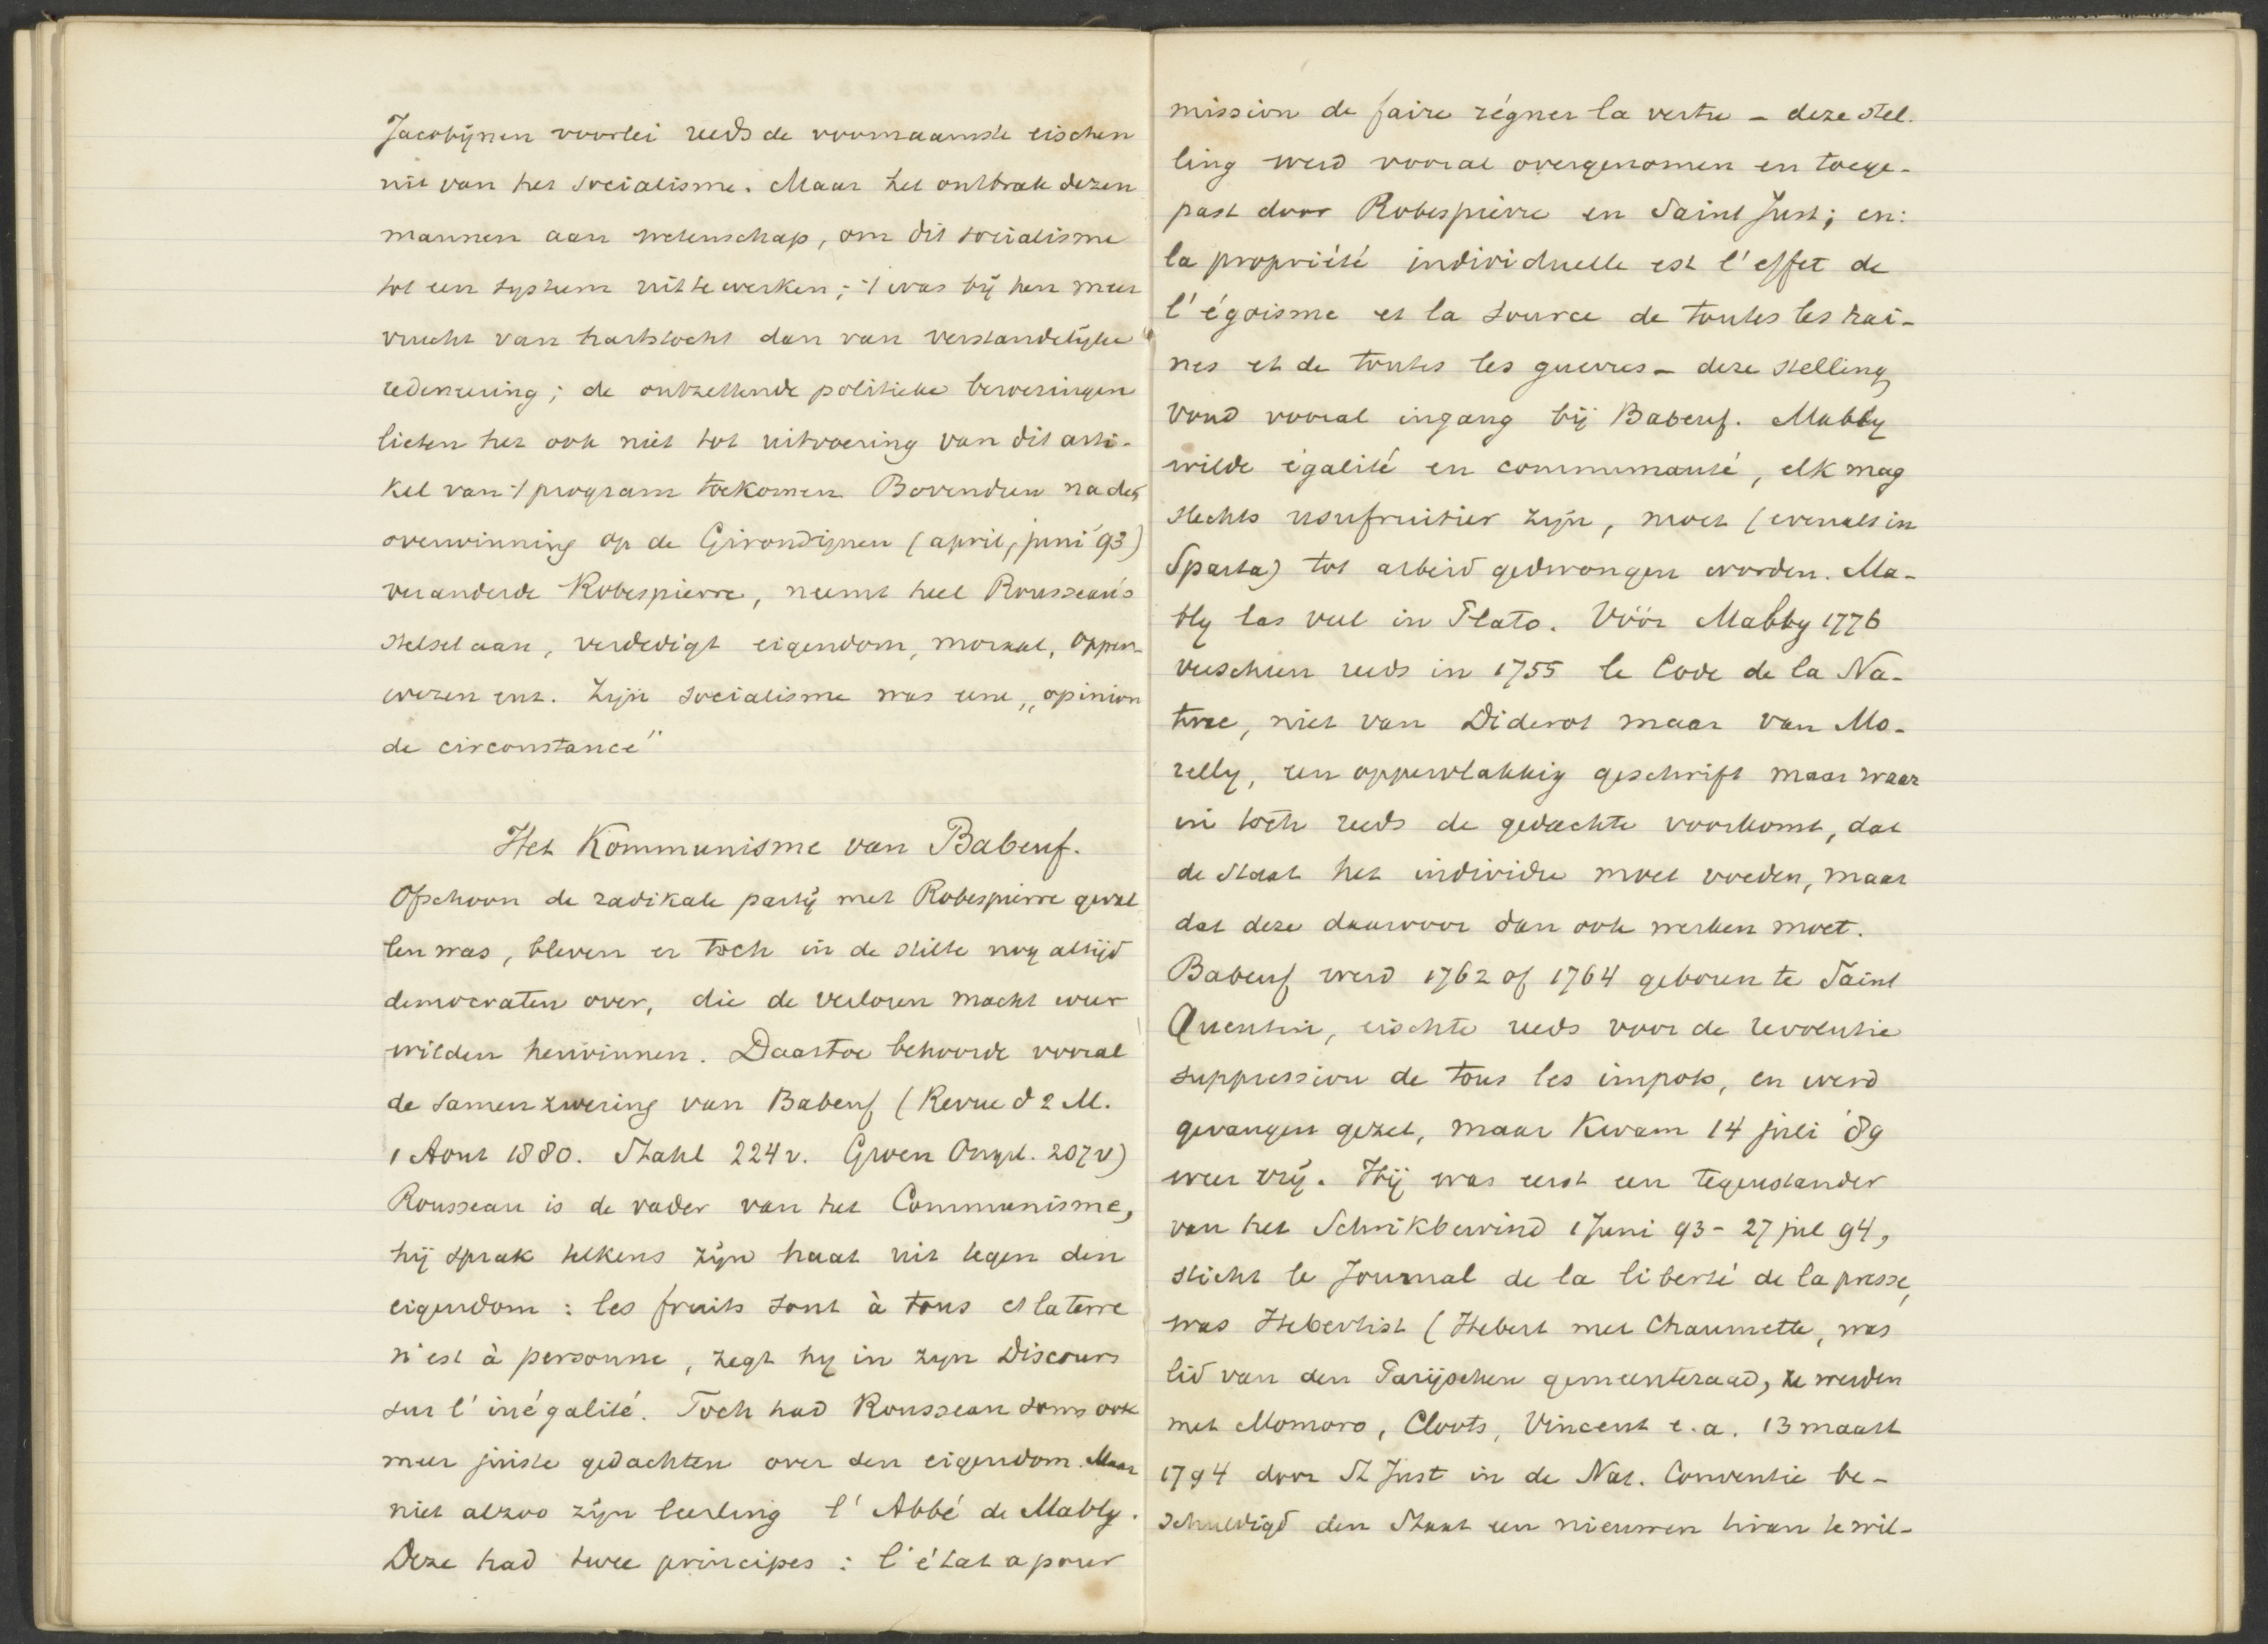 Jacobijnen voorlei reeds de voornaamste eischen
uit van het socialisme. Maar het ontbrak dezen
mannen aan wetenschap, om dit socialisme
tot een systeem uit te werken; 't was bij hen meer
vrucht van hartstocht dan van verstandelijke
redeneering; de ontzettende politieke beroeringen
lieten het ook niet tot uitvoering van dit arti-
kel van 't program toekomen. Bovendien na de
overwinning op de Girondijnen (april, juni '93)
veranderde Robespierre, neemt heel Rousseau's
stelsel aan, verdedigt eigendom, moraal, opper-
wezen enz. Zijn socialisme was eene „opinion
de circonstance"
Het Kommunisme van Babeuf.
Ofschoon de radikale partij met Robespierre geval
len was, bleven er toch in de stilte nog altijd
democraten over, die de verloren macht weer
wilden herwinnen. Daartoe behoorde vooral
de samenzwering van Babeuf (Revue d 2 M.
1 Aout 1880. Stahl 224 v. Groen Ongel. 207 v)
Rousseau is de vader van het Communisme,
hij sprak telkens zijn haat uit tegen den
eigendom : les fruits sont à tous et la terre
n'est à personne, zegt hy in zyn Discours
sur l'inégalité. Toch had Rousseau soms ook
meer juiste gedachten over den eigendom. Maar
niet alzoo zijn leerling l'Abbé de Mably.
Deze had twee principes : l'état a pour
mission de faire régner la vertu - deze stel.
ling werd vooral overgenomen en toege-
past door Robespierre en Saint Just; en:
la propriété individuelle est l'effet de
l'égoisme et la source de toutes les hai-
nes et de toutes les guerres - deze stelling
vond vooral ingang bij Babeuf. Mably
wilde égalité en communauté, elk mag
slechts usufruitier zijn, moet (evenals in
Sparta) tot arbeid gedwongen worden. Ma-
bly las veel in Plato. Vóór Mably 1776
verscheen reeds in 1755 le Code de la Na-
ture, niet van Diderot maar van Mo-
relly, een oppervlakkig geschrift maar waar
in toch reeds de gedachte voorkomt, dat
de staat het individu moet voeden, maar
dat deze daarvoor dan ook werken moet.
Babeuf werd 1762 of 1764 geboren te Saint
Quentin, eischte reeds voor de revolutie
suppression de tous les impots, en werd
gevangen gezet, maar kwam 14 juli '89
weer vrij. Hij was eerst een tegenstander
van het Schrikbewind 1 Juni 93 - 27 jul 94,
sticht le Journal de la liberté de la presse,
was Hebertist (Hebert met Chaumette, was
lid van den Parijschen gemeenteraad, ze werden
met Momoro, Cloots, Vincent e.a. 13 maart
1794 door St Just in de Nat. Conventie be-
schuldigd den Staat een nieuwen tiran te wil-